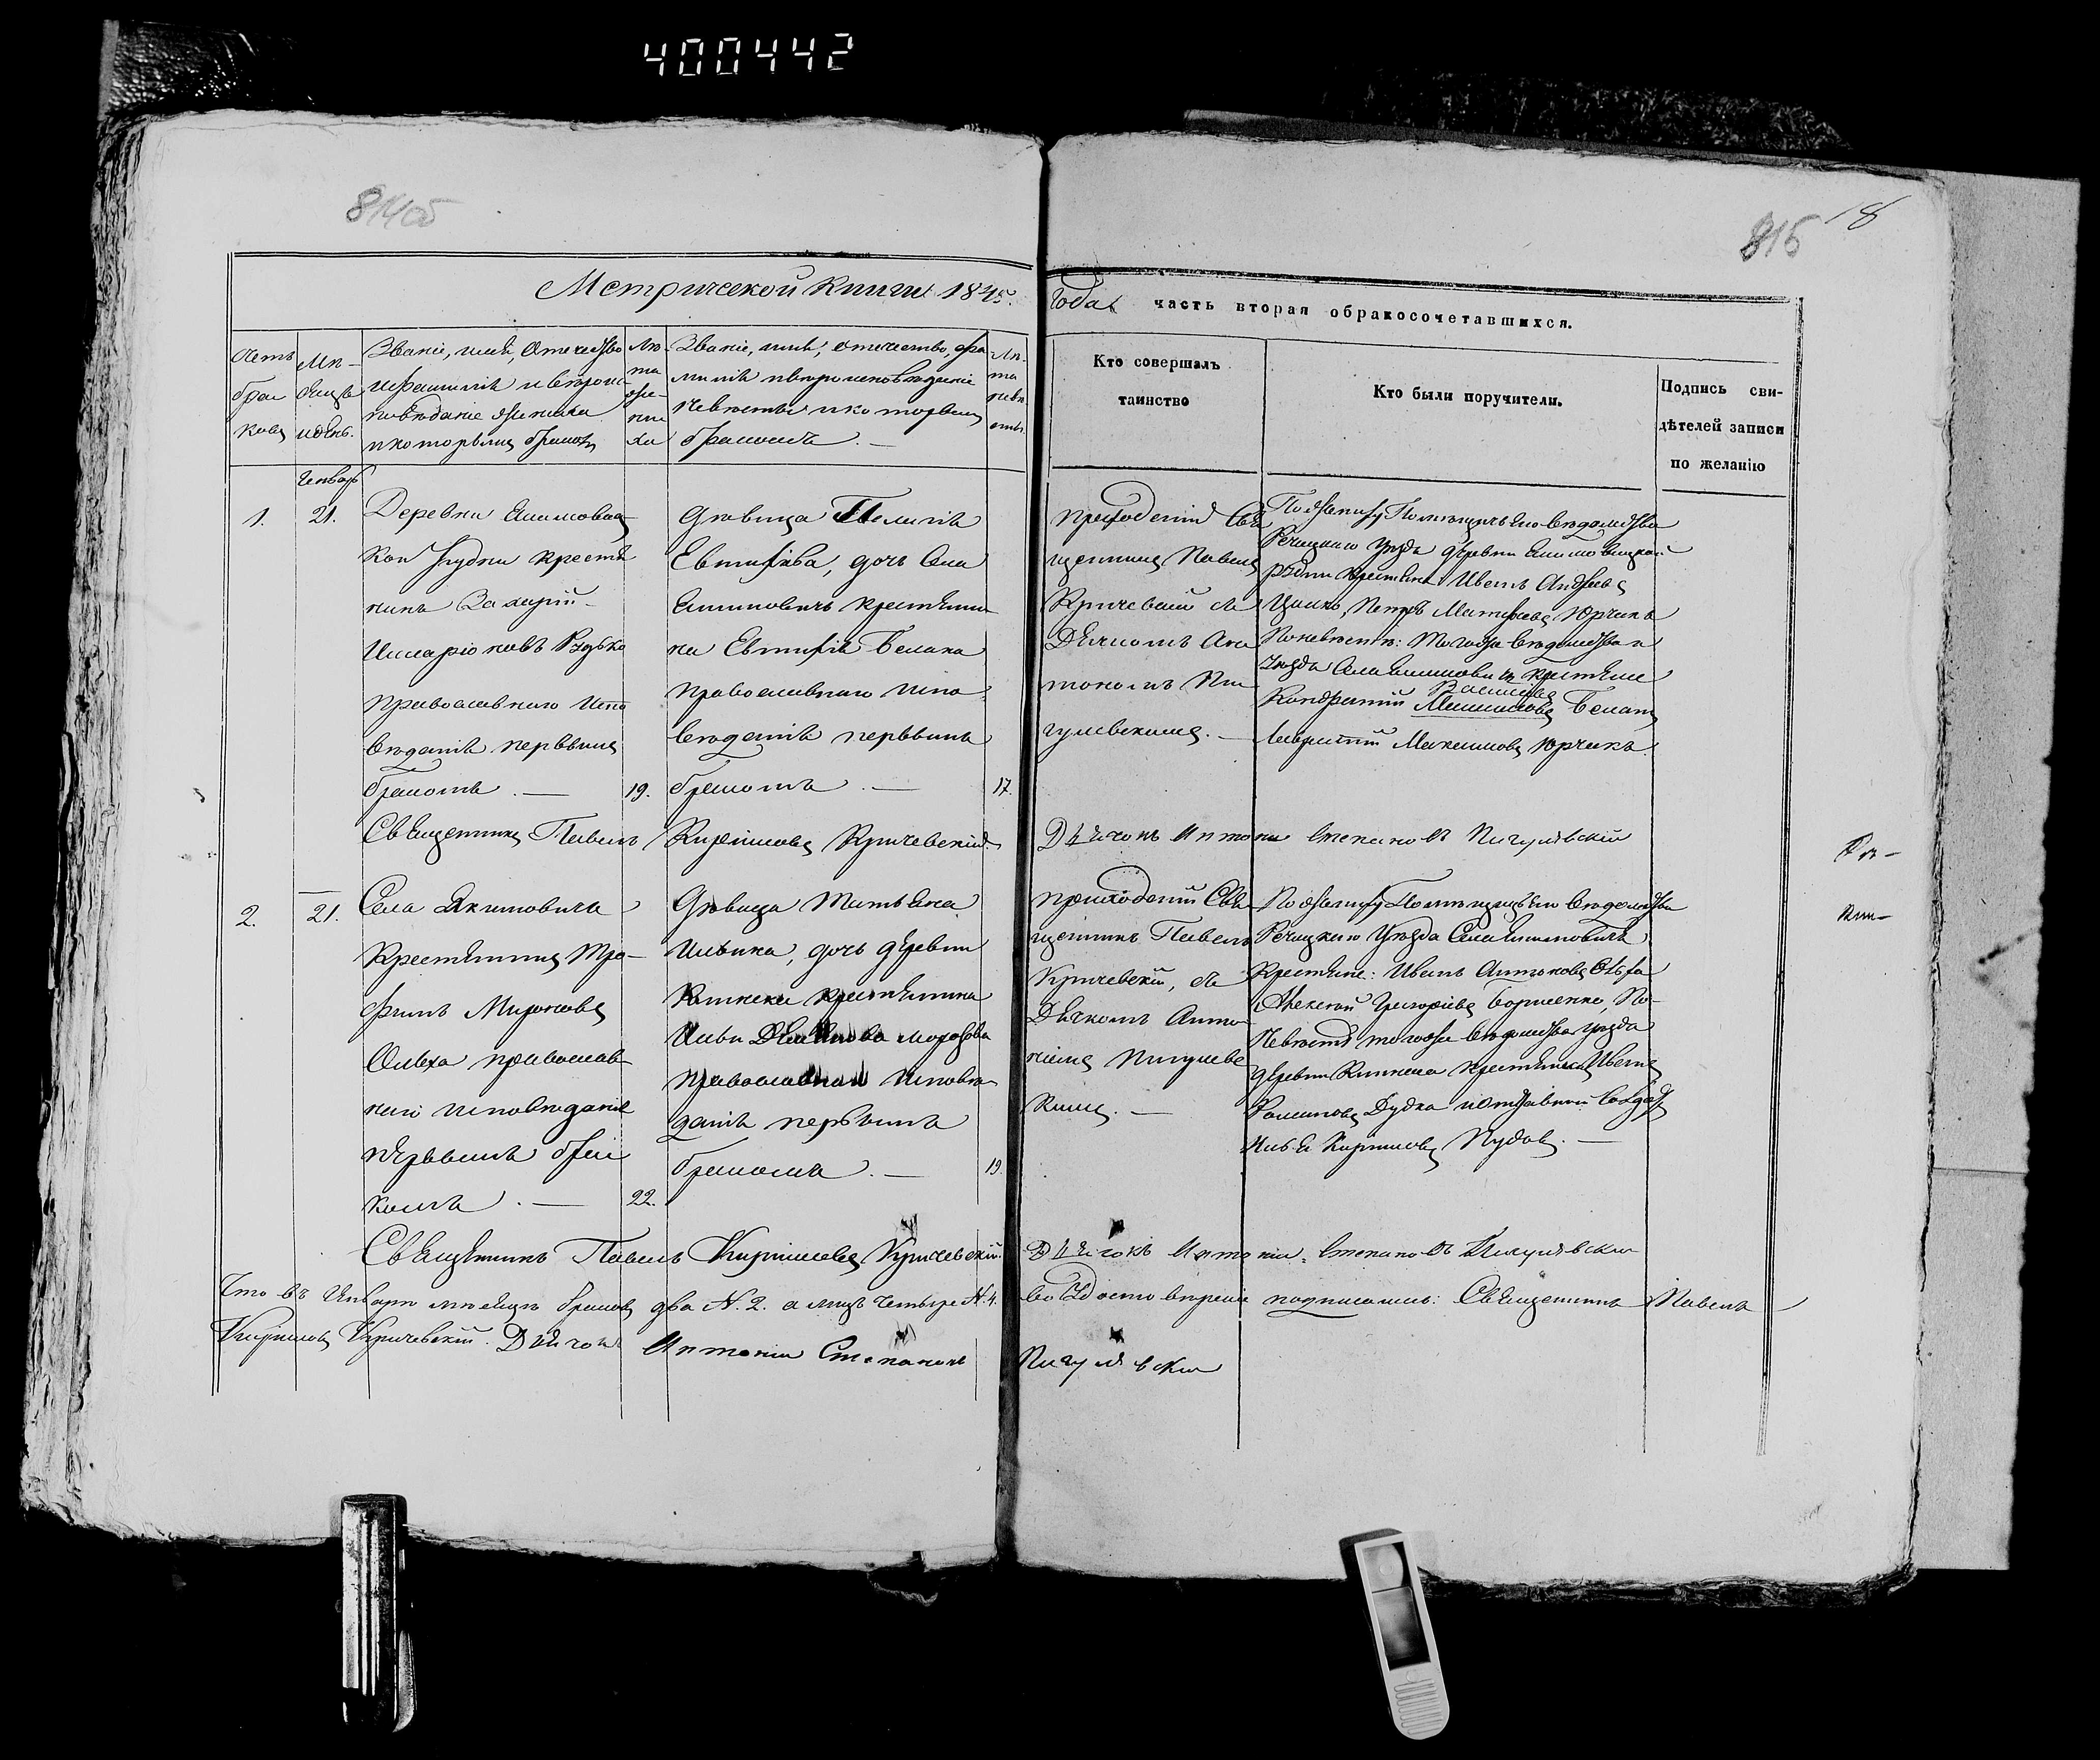 400442
814об
815
18
Метрической книги 1845.
года часть вторая обракосочетавшихся.
Счетъ
брак
ковъ
Мѣ-
сяцъ
и день.
Званіе, имя, отечество
и фамилія и вѣроис-
повѣданіе жениха
и которымъ бракомъ
Лѣ-
та
же-
ни-
ха
Званіе, имя, отечество, фа
милія и вѣроисповѣданіе
невѣсты и которымъ
бракомъ. —
Лѣ-
та
невѣ
сты.
Кто совершалъ
таинство
Кто были поручители.
Подпись сви-
дѣтелей записи
по желанію
Генварь
1.
21.
Деревни Якимовиц
кои Рудни крестья
нинъ Захарій
Рудько
православнаго испо
вѣданія первымъ
бракомъ. —
19.
Дѣвица Пелагія
Евтифіева, дочь села
Якимовичъ крестьяни
на Евтифія Белана
православнаго испо
вѣданія первымъ
бракомъ. —
17.
приходскій Свя
щенникъ Павелъ
Кричевскій съ
Дьячкомъ Ан
тономъ Пи
гулевскимъ. —
По женихѣ Помѣщичьяго вѣдомства
Речицкаго уѣзда деревни Якимовицкой
Рудни крестьяне: Иванъ Андреевъ
Цалко, Петръ Матвѣевъ Юрчикъ
По невѣстѣ: того же вѣдомства и
уѣзда села Якимовичъ крестьяне
Василіевъ
Кондратій Беланъ
Максимовъ Юрчикъ.
Священникъ Павелъ Кириловъ Кричевскій.
Дьячокъ Антоній Степановъ Пигулявскій
2.
21.
Села Якимовичъ
Крестьянинъ Тро-
фимъ Мироновъ
Ольха православ
наго исповѣданія
первымъ бра
комъ. —
22.
Дѣвица Татьяна
Ильина, дочь деревни
крестьянина
Ильи Морозова
православнаго исповѣ
данія первымъ
бракомъ. —
19.
приходскій Свя
щенникъ Павелъ
Кричевскій, съ
Дьячкомъ Анто
ніемъ Пигулев
скимъ. —
По женихѣ Помѣщичьяго вѣдомства
Речицкаго уѣзда села Якимовичъ
Крестьяне: Иванъ Антоновъ Ольха
Алексѣй Григорьевъ Борисенко, По
Невѣстѣ того же вѣдомства уѣзда
деревни крестьянинъ Иванъ
Дудка и отставной солдатъ
Илья Кириловъ Пудовъ. —
Священникъ Павелъ Кириловъ Кричевскій.
Дьячокъ Антоній Степановъ Пигулявскій
Что въ Январѣ мѣсяцѣ браковъ два N. 2. а лицъ четыре N. 4.
во удостовѣреніе подписались: Священникъ Павелъ
Кириловъ Кричевскій. Дьячокъ Антоній Степановъ
Пигулявскій